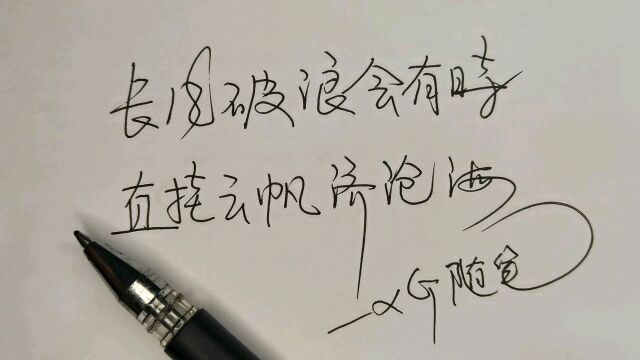 长风破浪会有时
直挂云帆济沧海
随笔